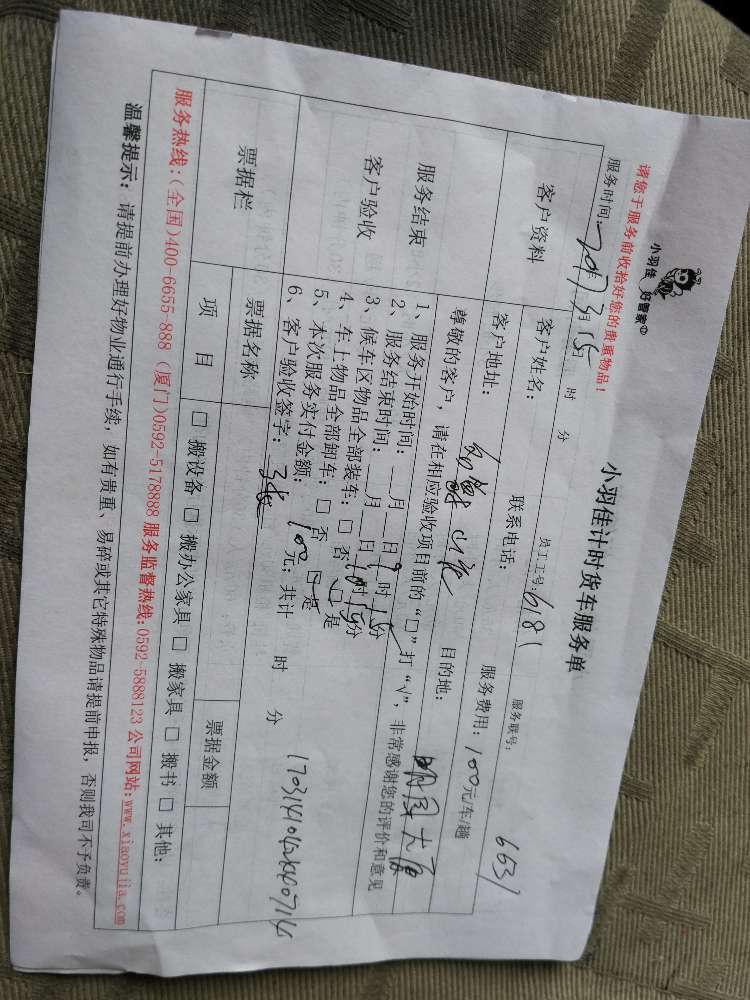 小羽佳 好管家
小羽佳计时货车服务单
请您于服务前收拾好您的贵重物品!
服务时间: 2017 3 15 时 分 员工工号: 6181 服务联号: 6631
客户资料
客户姓名: 联系电话: 服务费用: 100元/车/趟
客户地址: 目的地: 大厦
服务结束
客户验收
尊敬的客户, 请在相应验收项目前的“□”打“√”, 非常感谢您的评价和意见
1、服务开始时间: 月 日 9 时 15 分
2、服务结束时间: 月 日 10 时 15 分
3、候车区物品全部装车: □ 否 □ 是
4、车上物品全部卸车: □ 否 □ 是
5、本次服务实付金额: 100 元; 共计 时 分
6、客户验收签字:
票据栏
票据名称 票据金额
项 目 □ 搬设备 □ 搬办公家具 □ 搬家具 □ 搬书 □ 其他:
服务热线:(全国)400-6655-888 (厦门)0592-5178888 服务监督热线:0592-5888123 公司网站:www.xiaoyujia.com
温馨提示: 请提前办理好物业通行手续, 如有贵重、易碎或其它特殊物品请提前申报, 否则我司不予负责。